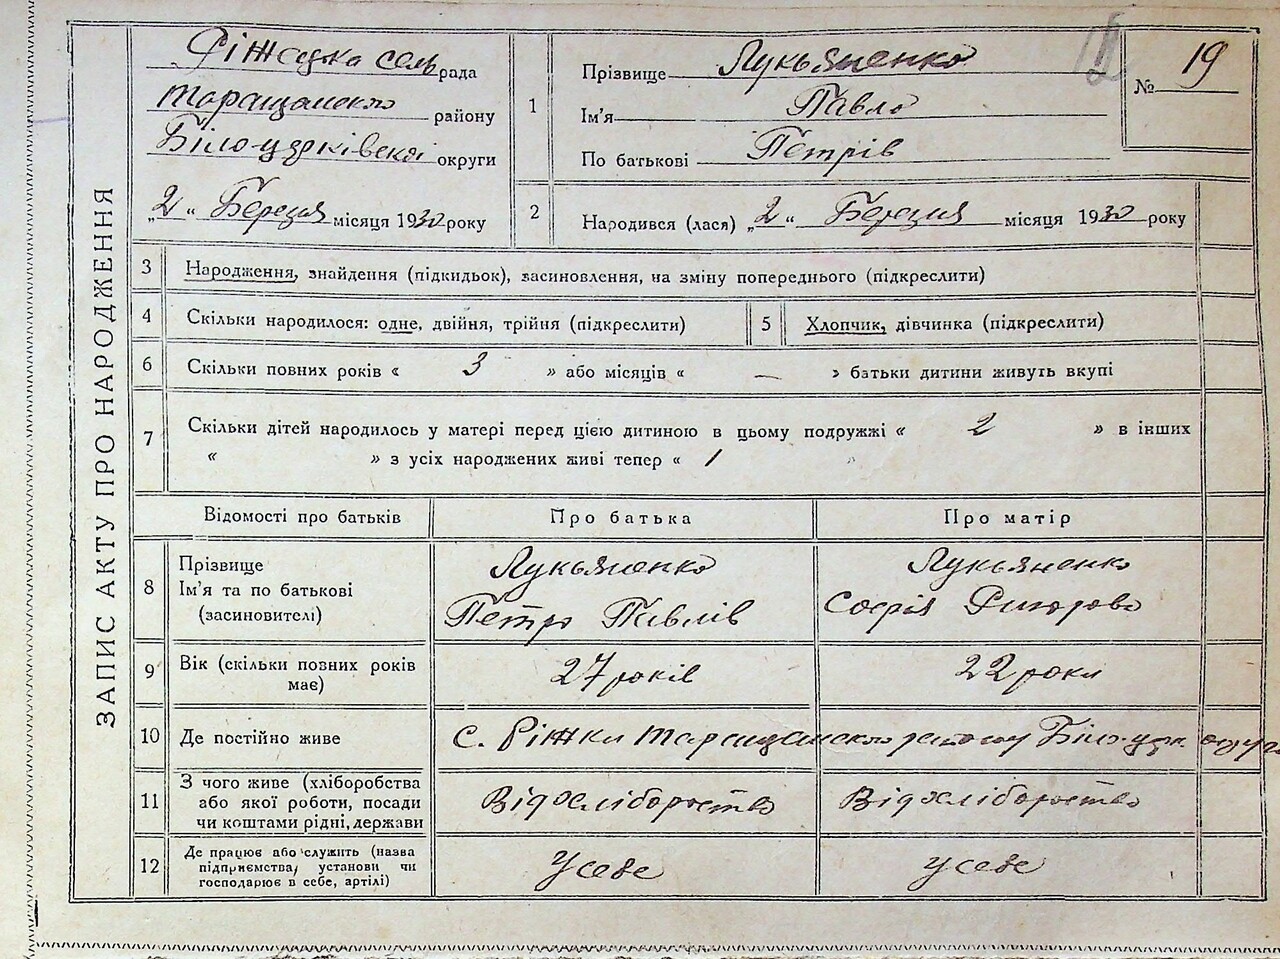 ЗАПИС АКТУ ПРО НАРОДЖЕННЯ
Ріжецка сель рада
Таращанского району
Білоцерківської округи
„2" Березня місяця 1930 року
1
Прізвище Лукьяненко
Ім'я Павло
По батькові Петрів
№ 19
2
Народився (лася) „2" Березня місяця 1930 року
3 Народження, знайдення (підкидьок), засиновлення, на зміну попереднього (підкреслити)
4 Скільки народилося: одне, двійня, трійня (підкреслити)
5 Хлопчик, дівчинка (підкреслити)
6 Скільки повних років « 3 » або місяців « — » батьки дитини живуть вкупі
7 Скільки дітей народилось у матері перед цією дитиною в цьому подружжі « 2 » в інших
« » з усіх народжених живі тепер « 1 »
Відомості про батьків Про батька Про матір
8
Прізвище
Ім'я та по батькові
(засиновителі)
Лукьяненко
Петро Павлів
Лукьяненко
Софія Григорова
9
Вік (скільки повних років
має)
27 років
22 роки
10 Де постійно живе
с. Ріжки Таращанского району Білоцерк. округи
11
З чого живе (хліборобства
або якої роботи, посади
чи коштами рідні, держави
Від хліборобства
Від хліборобства
12
Де працює або служить (назва
підприємства, установи чи
господарює в себе, артілі)
У себе
У себе